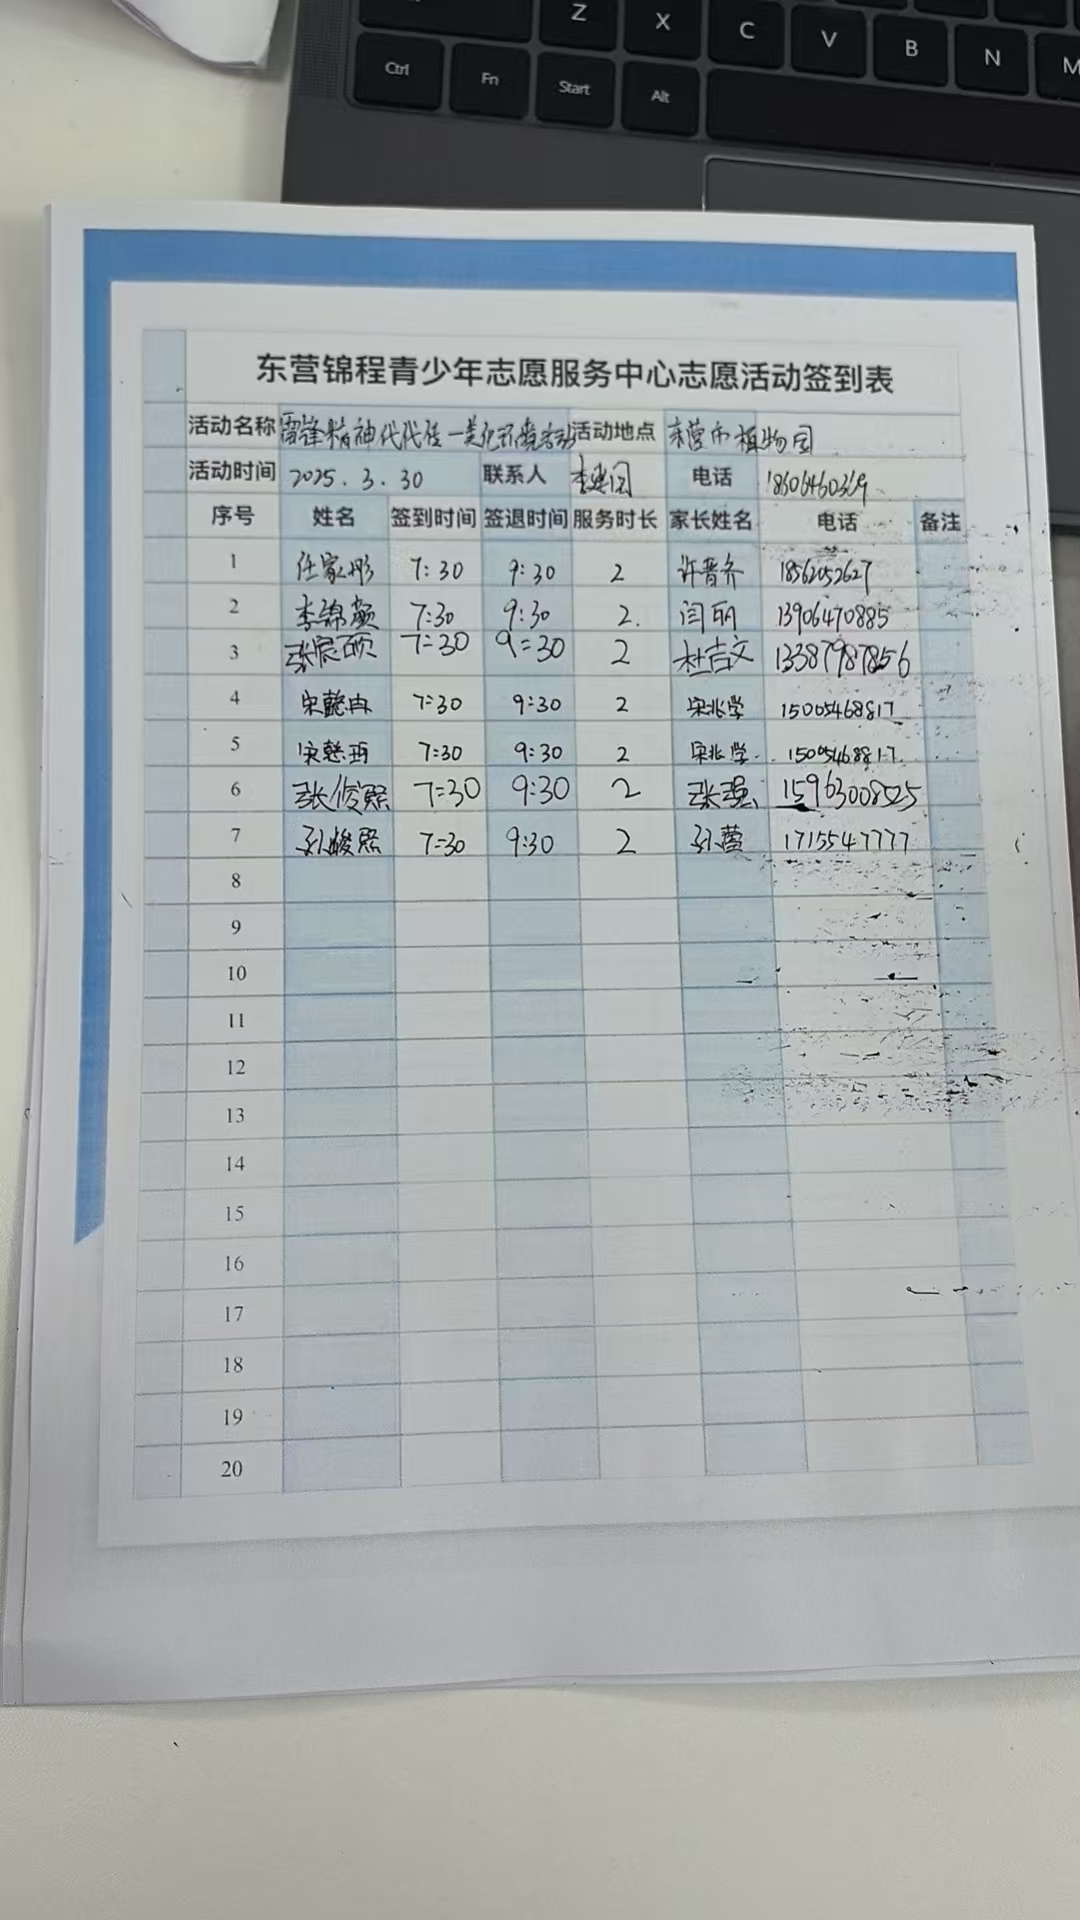 Z X C V B N M
Ctrl Fn Start Alt
东营锦程青少年志愿服务中心志愿活动签到表
活动名称 雷锋精神代代传一美化环境活动 活动地点 东营市植物园
活动时间 2025.3.30 联系人 李建国 电话 18606460369
序号 姓名 签到时间 签退时间 服务时长 家长姓名 电话 备注
1 任家彤 7:30 9:30 2 许晋齐 18562052627
2 李锦颜 7:30 9:30 2. 闫丽 13906470885
3 张宸硕 7:30 9:30 2 杜吉文 13387987856
4 宋懿冉 7:30 9:30 2 宋兆学 15005468817
5 宋懿珂 7:30 9:30 2 宋兆学 15005468817
6 张俊熙 7:30 9:30 2 张强 15963008525
7 孙峻熙 7:30 9:30 2 孙蕾 1715547777
8
9
10
11
12
13
14
15
16
17
18
19
20